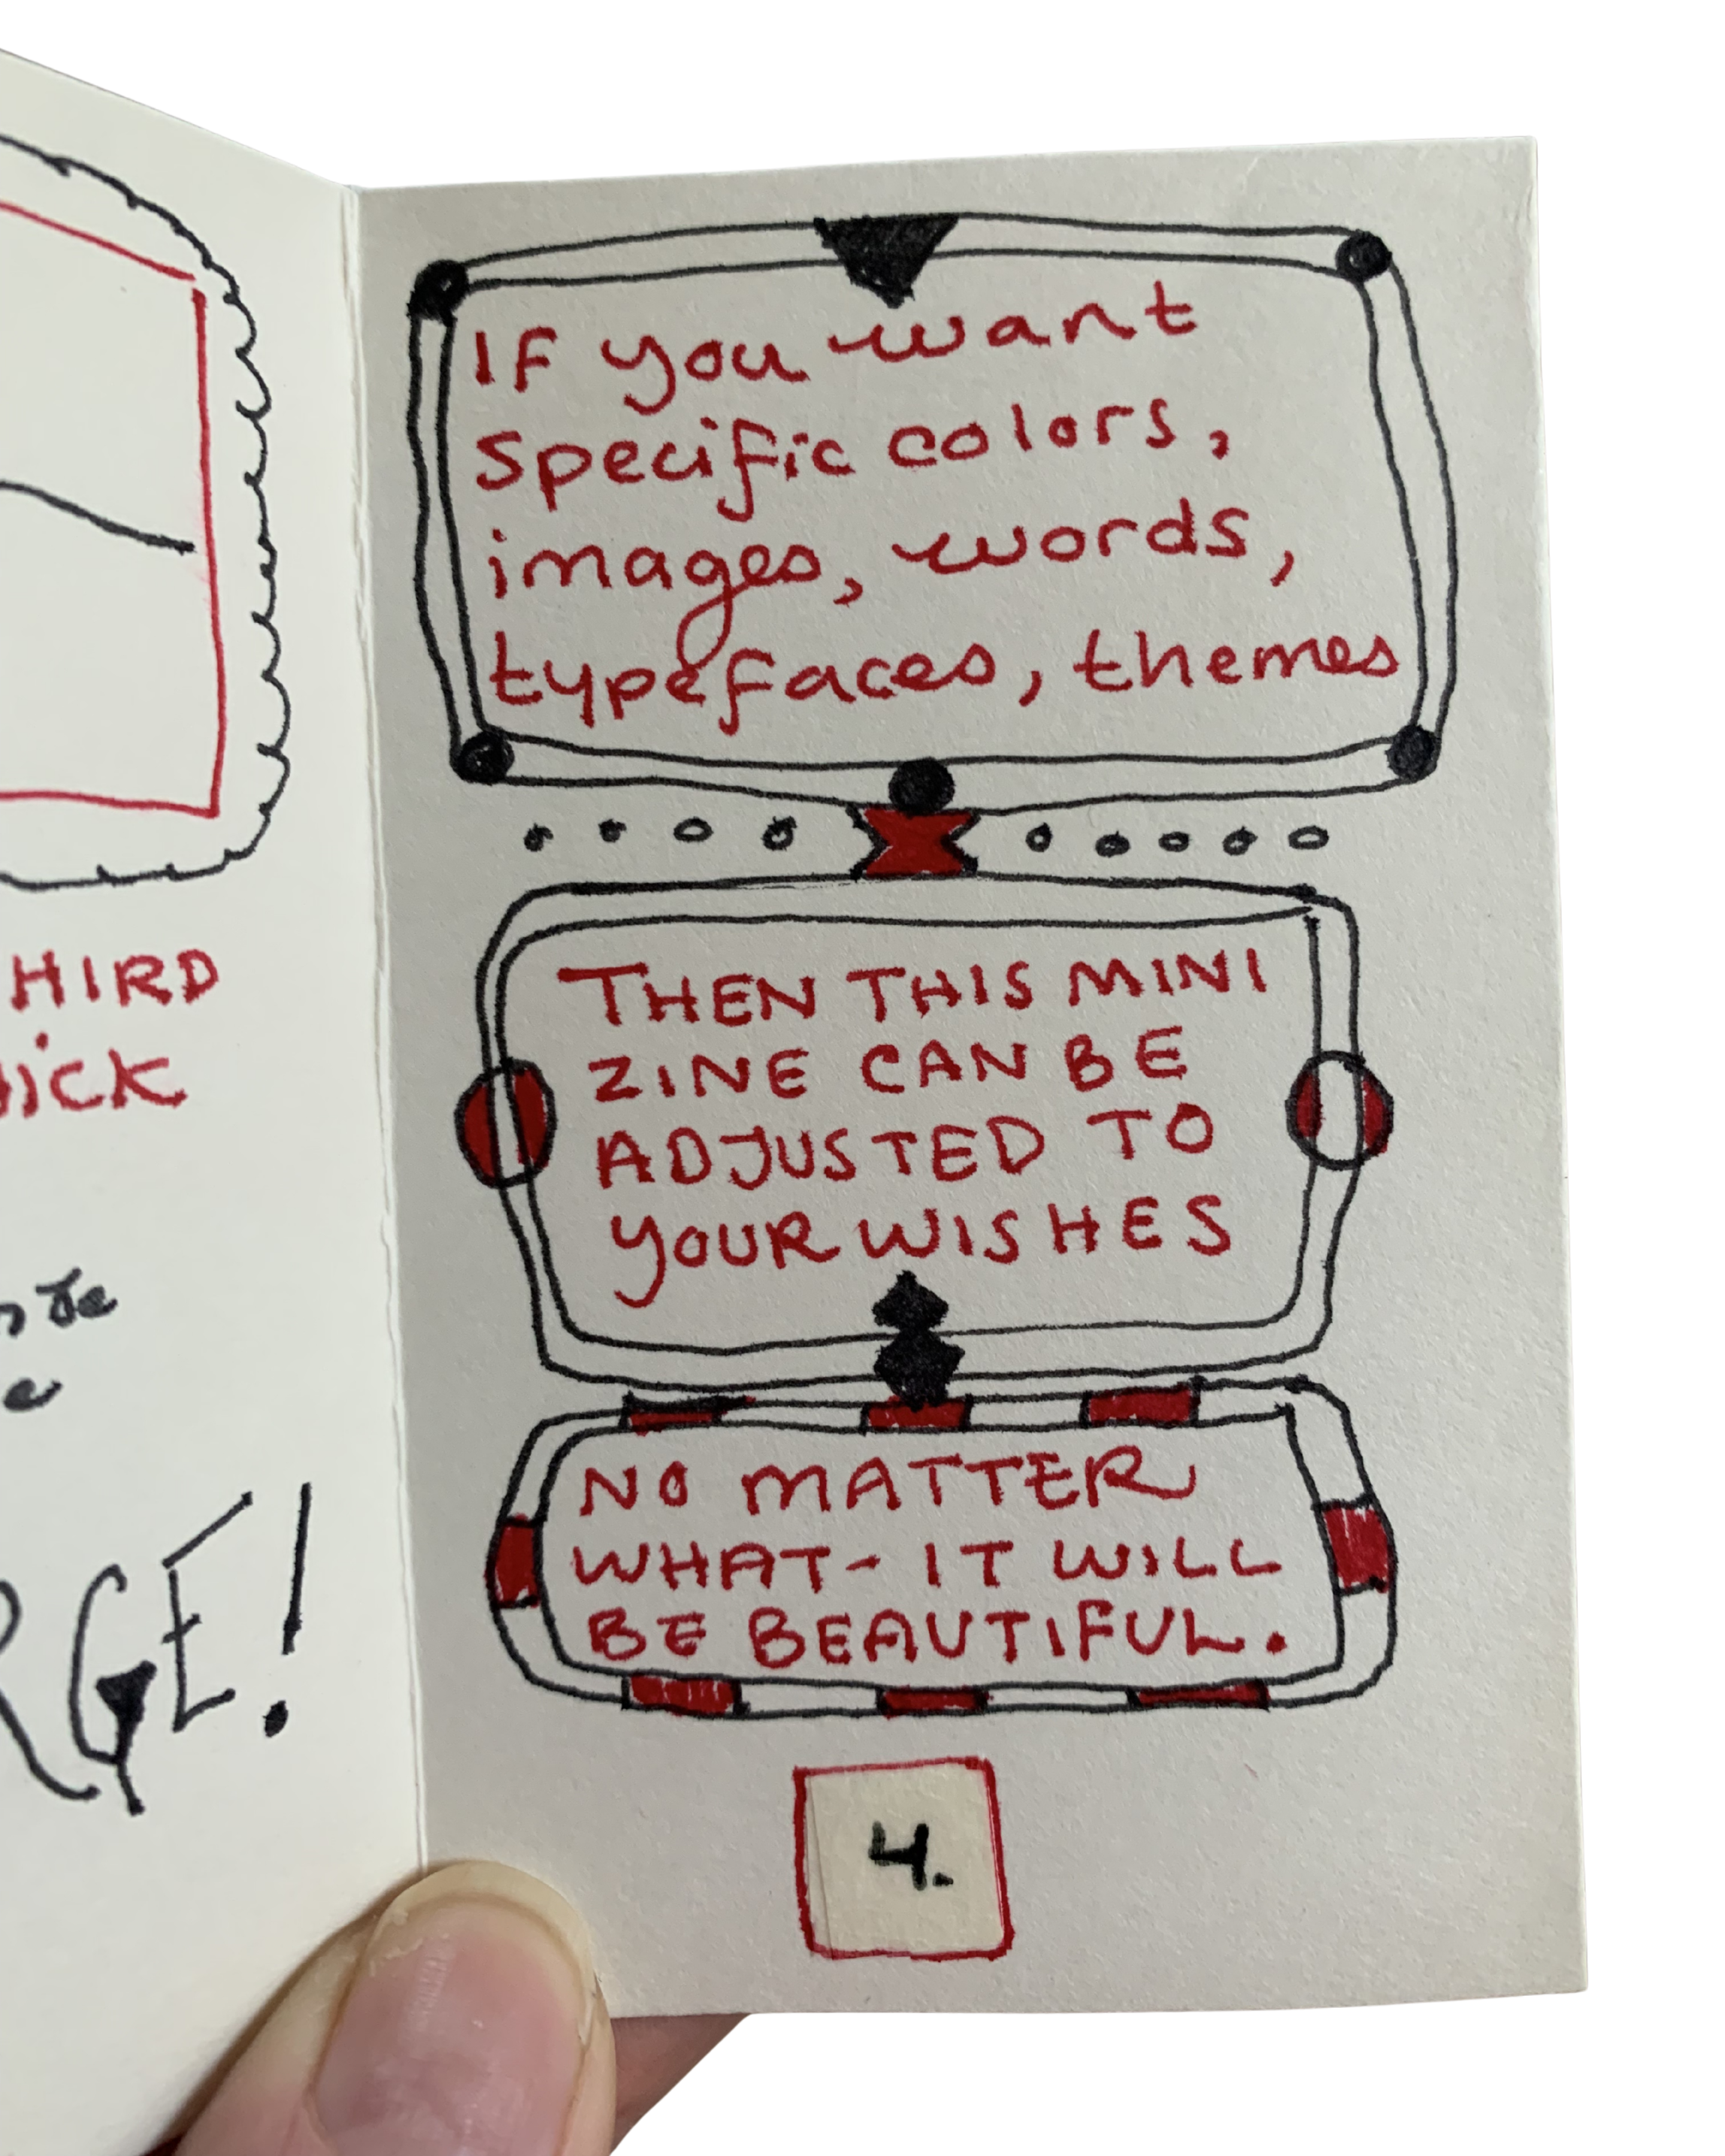 HIRD
If you want
specific colors,
images, words,
typefaces, themes
THEN THIS MINI
ZINE CAN BE
ADJUSTED TO
YOUR WISHES
NO MATTER
WHAT- IT WILL
BE BEAUTIFUL.
4.